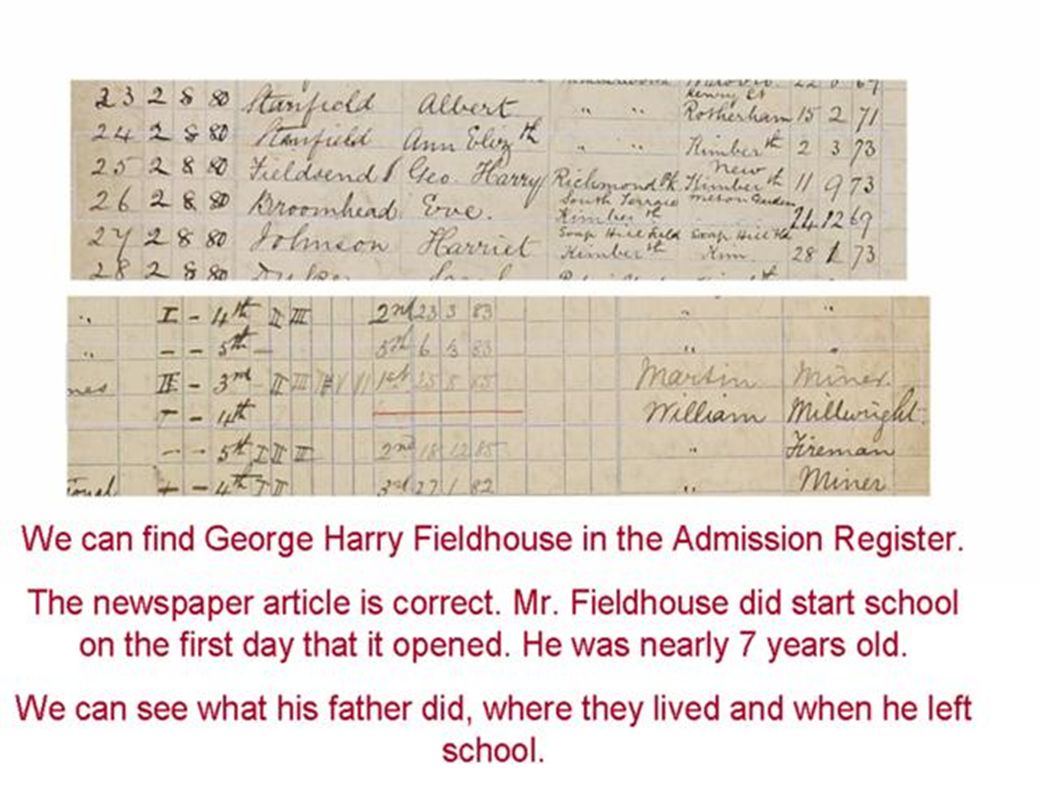 23 2 8 80 Stanfield Albert " " Henry St Rotherham 15 2 71
24 2 8 80 Stanfield Ann Elizth " " Kimberth 2 3 73
25 2 8 80 Fieldsend Geo. Harry Richmond Pk Kimberth New 11 9 73
26 2 8 80 Broomhead Eve. South Terrace Kimberth 24 12 69
27 2 8 80 Johnson Harriet Soap Hill Field Kimberth Soap Hill Kim 28 1 73
28 2 8 80
" I - 4th II III 2nd 23 3 83 " "
" - - 5th - 5th 6 3 83 " "
3rd II III 1st Martin Miner.
- 4th William Millwright.
- - 5th I II II 2nd 18 12 85 " Fireman
- 4th I II 3rd 27 1 82 " Miner
We can find George Harry Fieldhouse in the Admission Register.
The newspaper article is correct. Mr. Fieldhouse did start school
on the first day that it opened. He was nearly 7 years old.
We can see what his father did, where they lived and when he left
school.